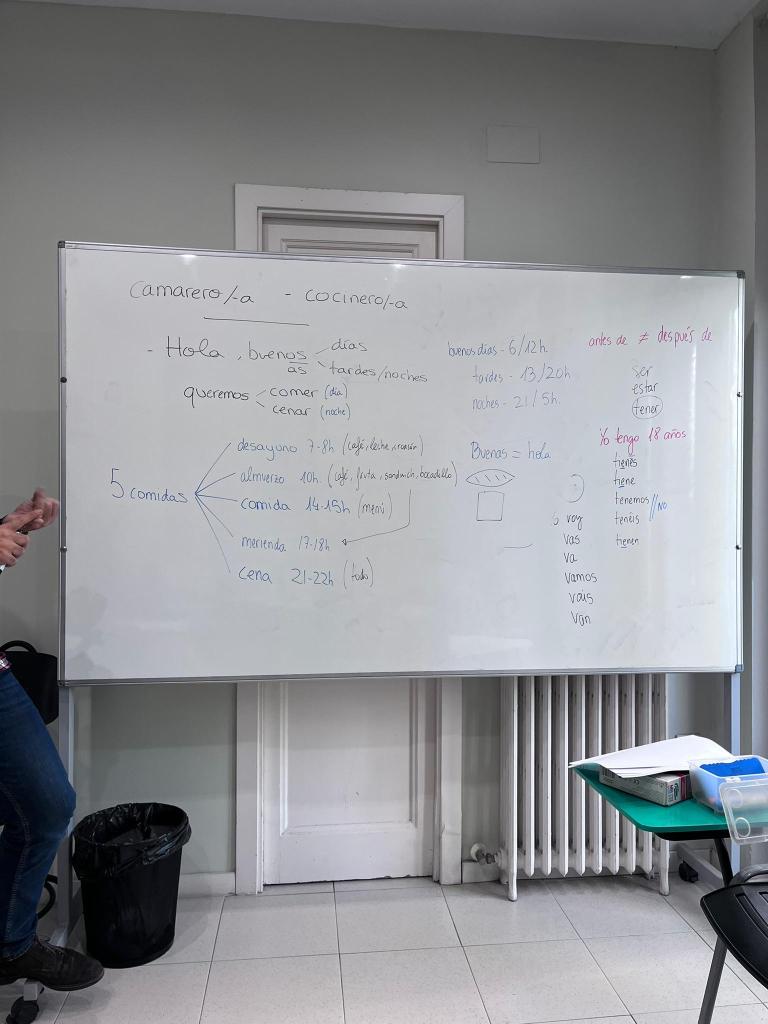 camarero/-a - cocinero/-a
- Hola, buenos días
as tardes/noches
queremos comer (día)
cenar (noche)
5 comidas
desayuno 7-8h (café, leche, croasán)
almuerzo 10h. (café, fruta, sandwich, bocadillo)
comida 14-15h (menú)
merienda 17-18h
cena 21-22h (todo)
buenos días - 6/12h.
tardes - 13/20h.
noches - 21/5h.
Buenas = hola
voy
vas
va
vamos
vais
van
antes de ≠ después de
ser
estar
tener
Yo tengo 18 años
tienes
tiene
tenemos
tenéis // NO
tienen